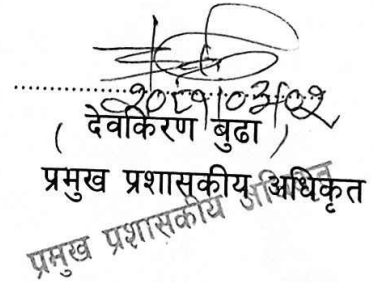 २०८१।०३।०२
( देवकिरण बुढा )
प्रमुख प्रशासकीय अधिकृत
प्रमुख प्रशासकीय अधिकृत